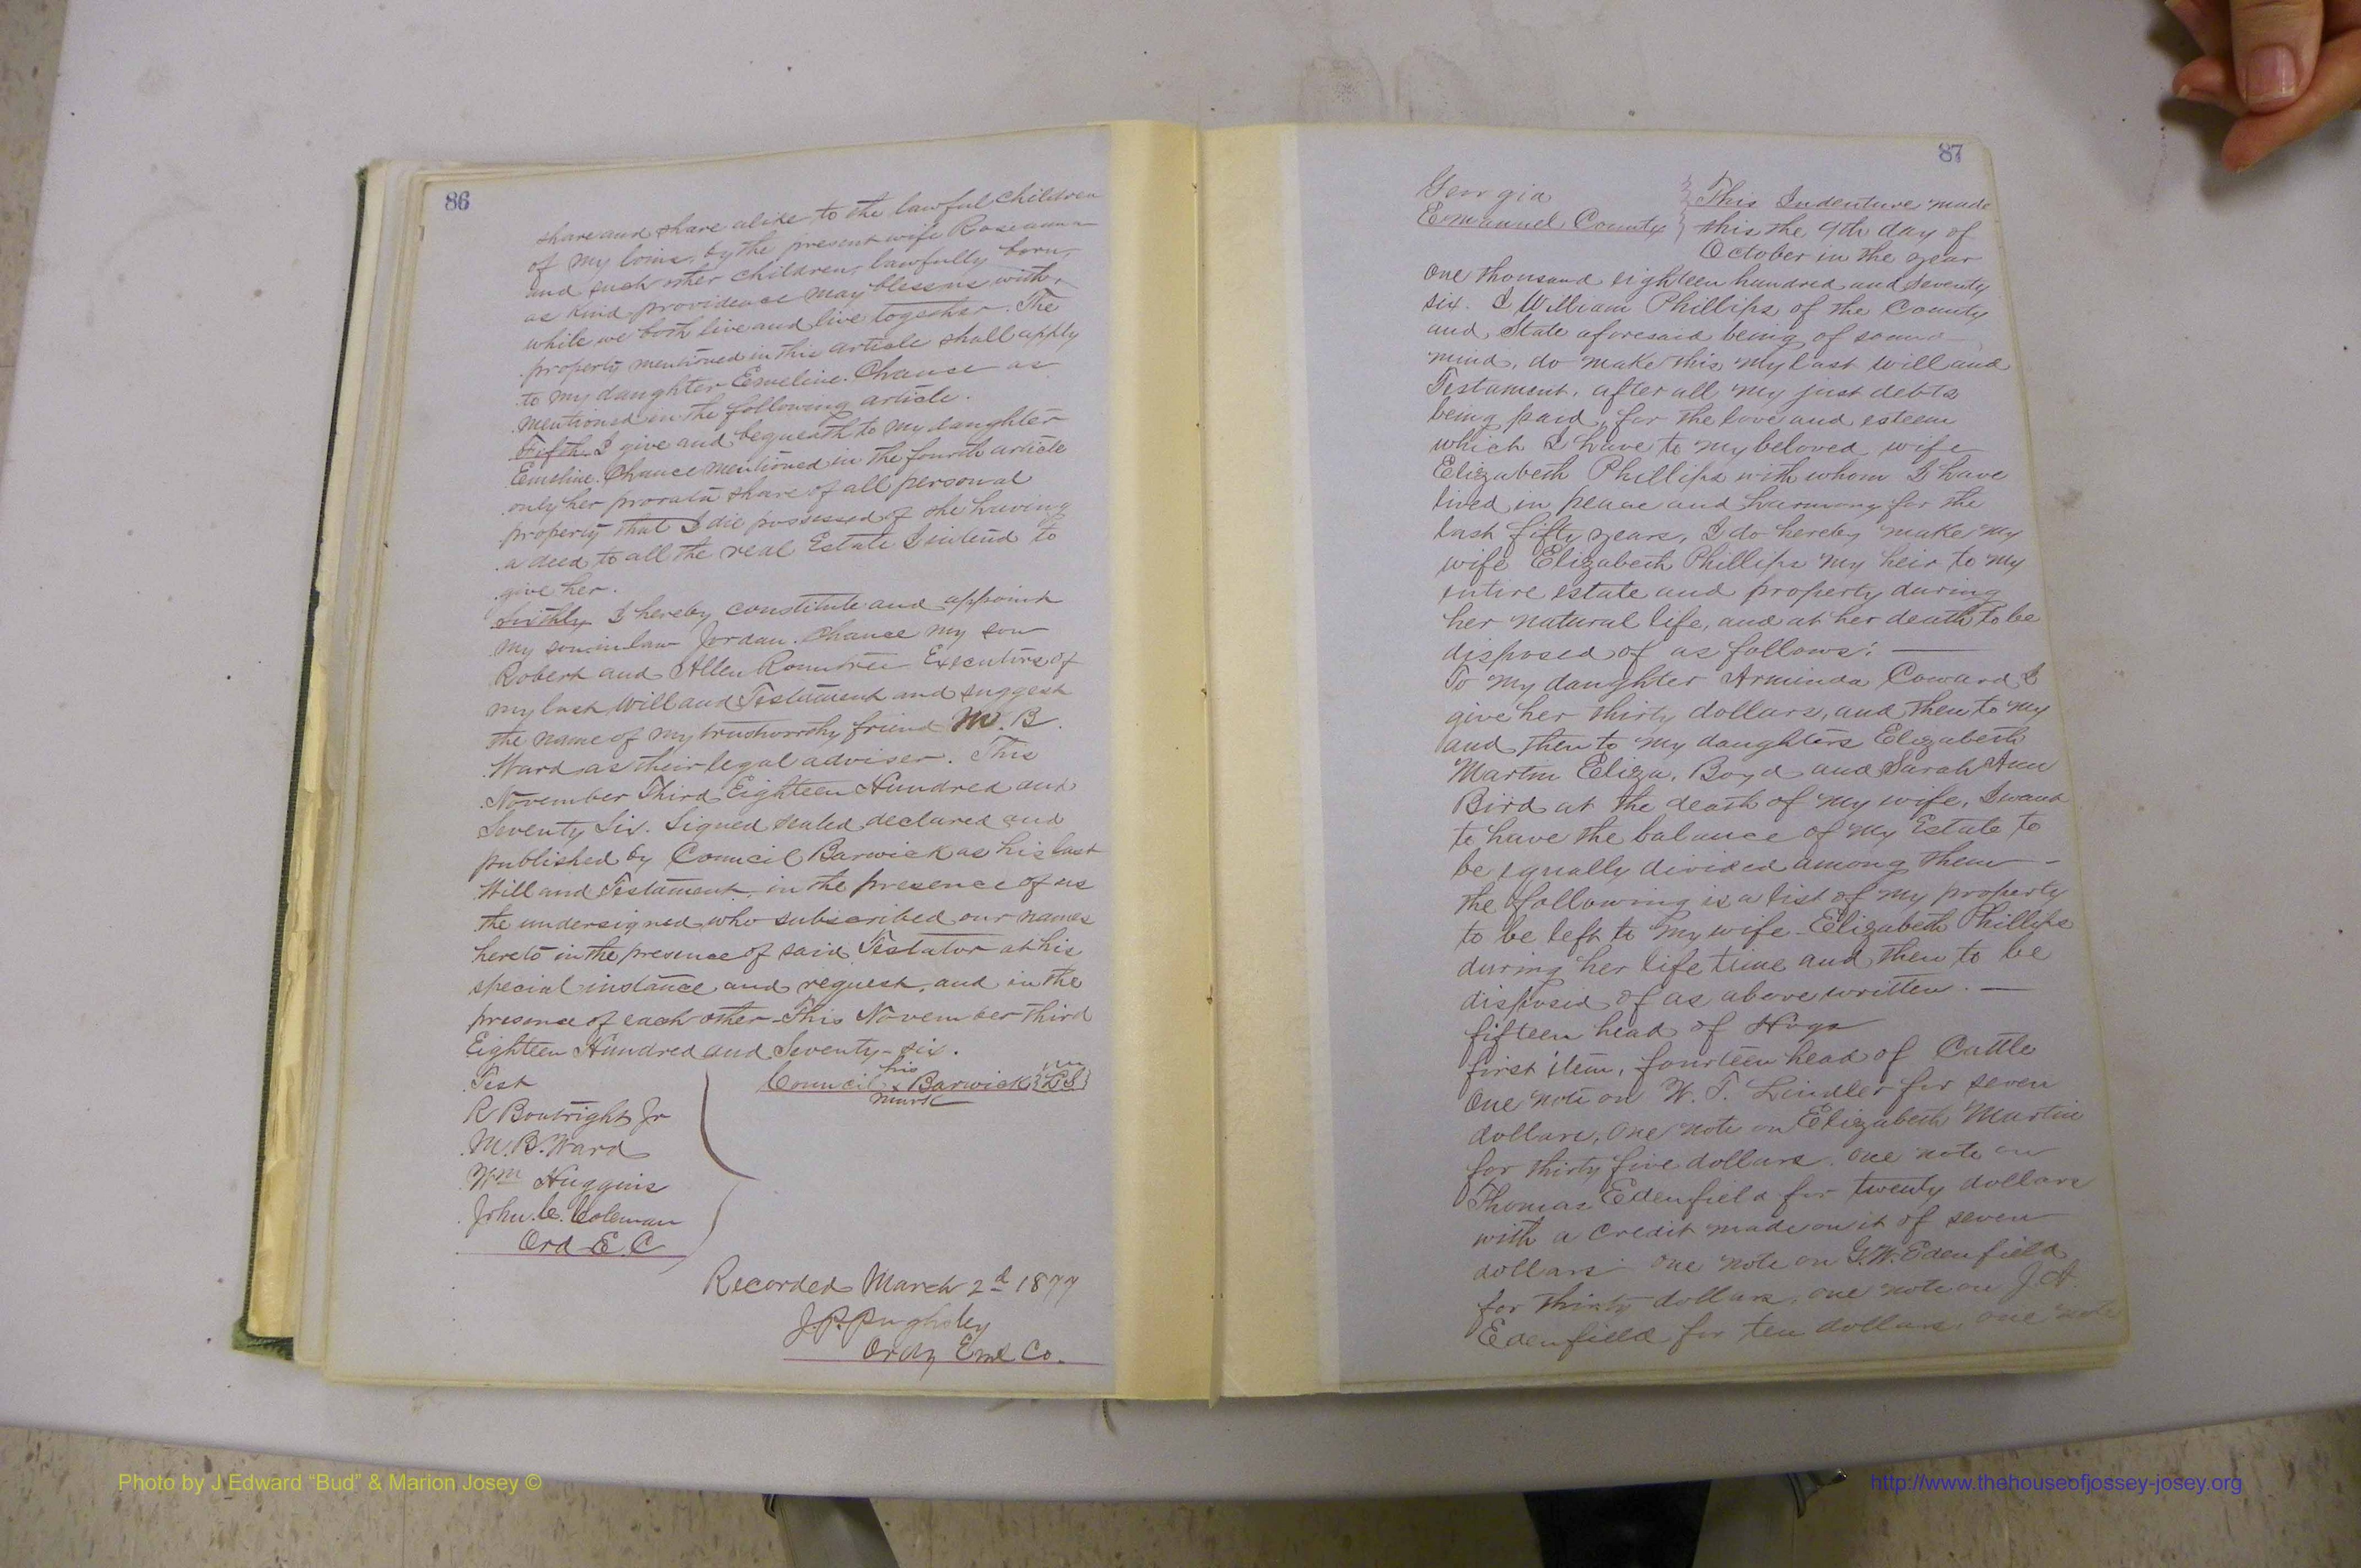 86
share and share alike to the lawful children
of my loins, by the present wife Roseanna
and such other children, lawfully born,
as kind providence may bless us with,
while we both live and live together. The
property mentioned in this article shall apply
to my daughter Emeline. Chance as
mentioned in the following article.
Fifth. I give and bequeath to my daughter
Emeline. Chance mentioned in the fourth article
only her prorata share of all personal
property that I die possessed of she having
a deed to all the real Estate I intend to
give her.
Sixthly I hereby constitute and appoint
my son-in-law Jordan. Chance my son
Robert and Allen Rountree Executors of
my last Will and Testament and suggest
the name of my trustworthy friend M. B.
Ward as their legal adviser. This
November Third Eighteen Hundred and
Seventy Six. Signed sealed declared and
published by Council Barwick as his last
Will and Testament, in the presence of us
the undersigned who subscribed our names
hereto in the presence of said Testator at his
special instance and request, and in the
presence of each other This November third
Eighteen Hundred and Seventy-six.
his
Test Council x Barwick {LS}
mark
R Boatright Jr
M. B. Ward
Wm Huggins
John. C. Coleman
Ord E. C
Recorded March 2d 1877
J. P. Pughsley
Ordy Eml. Co.
87
Georgia } This Indenture made
Emanuel County } this the 9th day of
October in the year
one thousand eighteen hundred and seventy
six. I William Phillips of the County
and State aforesaid being of sound
mind, do make this my last will and
Testament, after all my just debts
being paid, for the love and esteem
which I have to my beloved wife
Elizabeth Phillips with whom I have
lived in peace and harmony for the
last fifty years, I do hereby make my
wife Elizabeth Phillips my heir to my
entire estate and property during
her natural life, and at her death to be
disposed of as follows: —
To my daughter Arminda Coward I
give her thirty dollars, and then to my
and then to my daughters Elizabeth
Martin Eliza. Boyd and Sarah Ann
Bird at the death of my wife, I want
to have the balance of my Estate to
be equally divided among them —
the following is a list of my property
to be left to my wife Elizabeth Phillips
during her life time and then to be
disposed of as above written. —
fifteen head of Hogs
first item, fourteen head of Cattle
one note on W. T. Lindler for seven
dollars, one note on Elizabeth Martin
for thirty five dollars. one note on
Thomas Edenfield for twenty dollars
with a credit made on it of seven
dollars one note on G. W. Edenfield
for thirty dollars, one note on J. A.
Edenfield for ten dollars, one note
Photo by J Edward “Bud” & Marion Josey ©
http://www.thehouseofjossey-josey.org